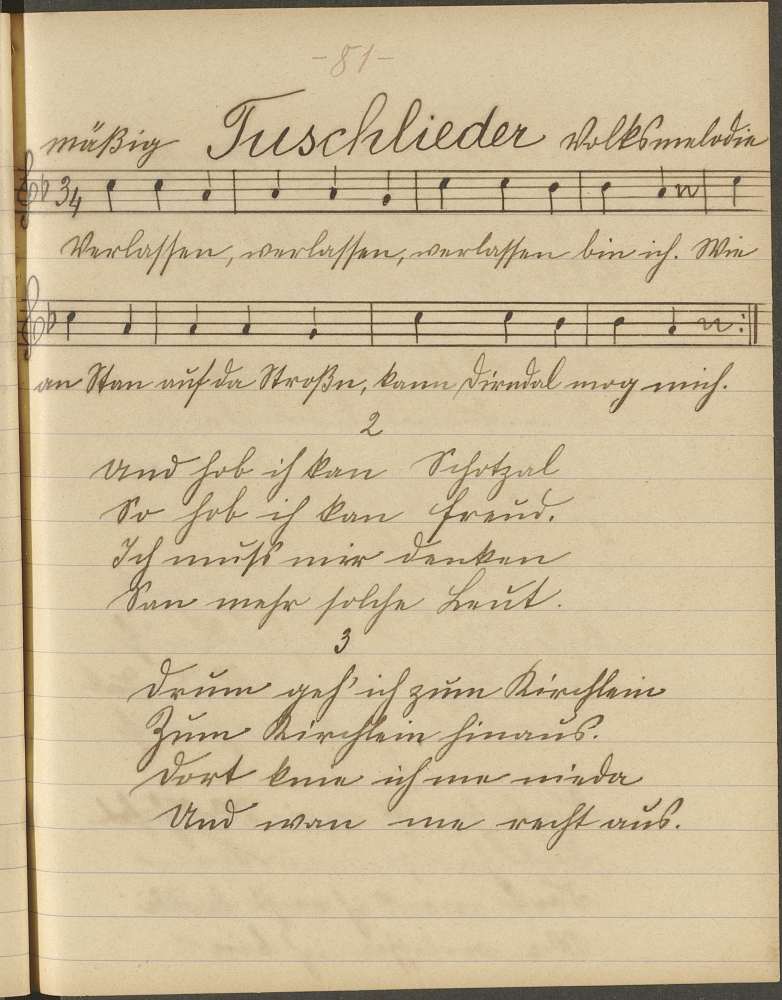 -81-
mäßig Tuschlieder Volksmelodie
3/4
Verlassen, verlassen, verlassen bin ich. Wie
an Stan auf da Stroßn, kann Dirndal mog mich.
2
Und hob ich kan Schotzal
So hob ich kan Freud.
Ich muss mir denken
San mehr solche Leut.
3
Drum geh' ich zum Kirchlein
Zum Kirchlein hinaus.
Dort knie ich me nieda
Und wan me recht aus.